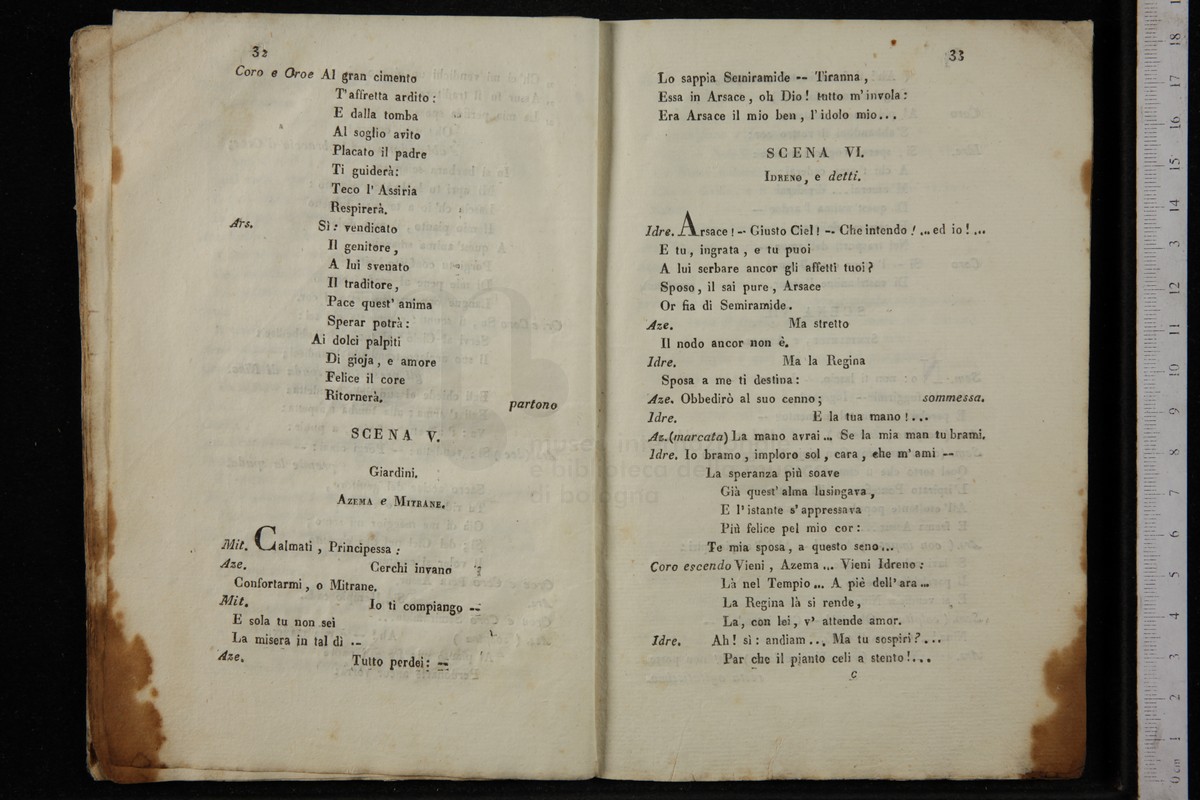 32
Coro e Oroe Al gran cimento
T'affretta ardito :
E dalla tomba
Al soglio avito
Placato il padre
Ti guiderà:
Teco l' Assiria
Respirerà.
Ars. Sì: vendicato
Il genitore,
A lui svenato
Il traditore,
Pace quest' anima
Sperar potrà:
Ai dolci palpiti
Di gioja, e amore
Felice il core
Ritornerà.
partono
SCENA V.
Giardini.
AZEMA e MITRANE.
Mit. Calmati, Principessa:
Aze. Cerchi invano
Confortarmi, o Mitrane.
Mit. Io ti compiango --
E sola tu non sei
La misera in tal dì --
Aze. Tutto perdei: --
33
Lo sappia Semiramide -- Tiranna,
Essa in Arsace, oh Dio! tutto m' invola:
Era Arsace il mio ben, l'idolo mio...
SCENA VI.
IDRENO, e detti.
Idre. Arsace! -- Giusto Ciel! -- Che intendo! ... ed io! ...
E tu, ingrata, e tu puoi
A lui serbare ancor gli affetti tuoi?
Sposo, il sai pure, Arsace
Or fia di Semiramide.
Aze. Ma stretto
Il nodo ancor non è.
Idre. Ma la Regina
Sposa a me ti destina:
Aze. Obbedirò al suo cenno; sommessa.
Idre. E la tua mano!...
Az.(marcata) La mano avrai... Se la mia man tu brami.
Idre. Io bramo, imploro sol, cara, che m' ami --
La speranza più soave
Già quest' alma lusingava,
E l'istante s' appressava
Più felice pel mio cor:
Te mia sposa, a questo seno...
Coro escendo Vieni, Azema ... Vieni Idreno:
Là nel Tempio ... A piè dell' ara ...
La Regina là si rende,
La, con lei, v' attende amor.
Idre. Ah! sì: andiam... Ma tu sospiri?...
Par che il pianto celi a stento!...
c
museo internazionale
e biblioteca della
di bologna
0 cm 1 2 3 4 5 6 7 8 9 10 11 12 13 14 15 16 17 18